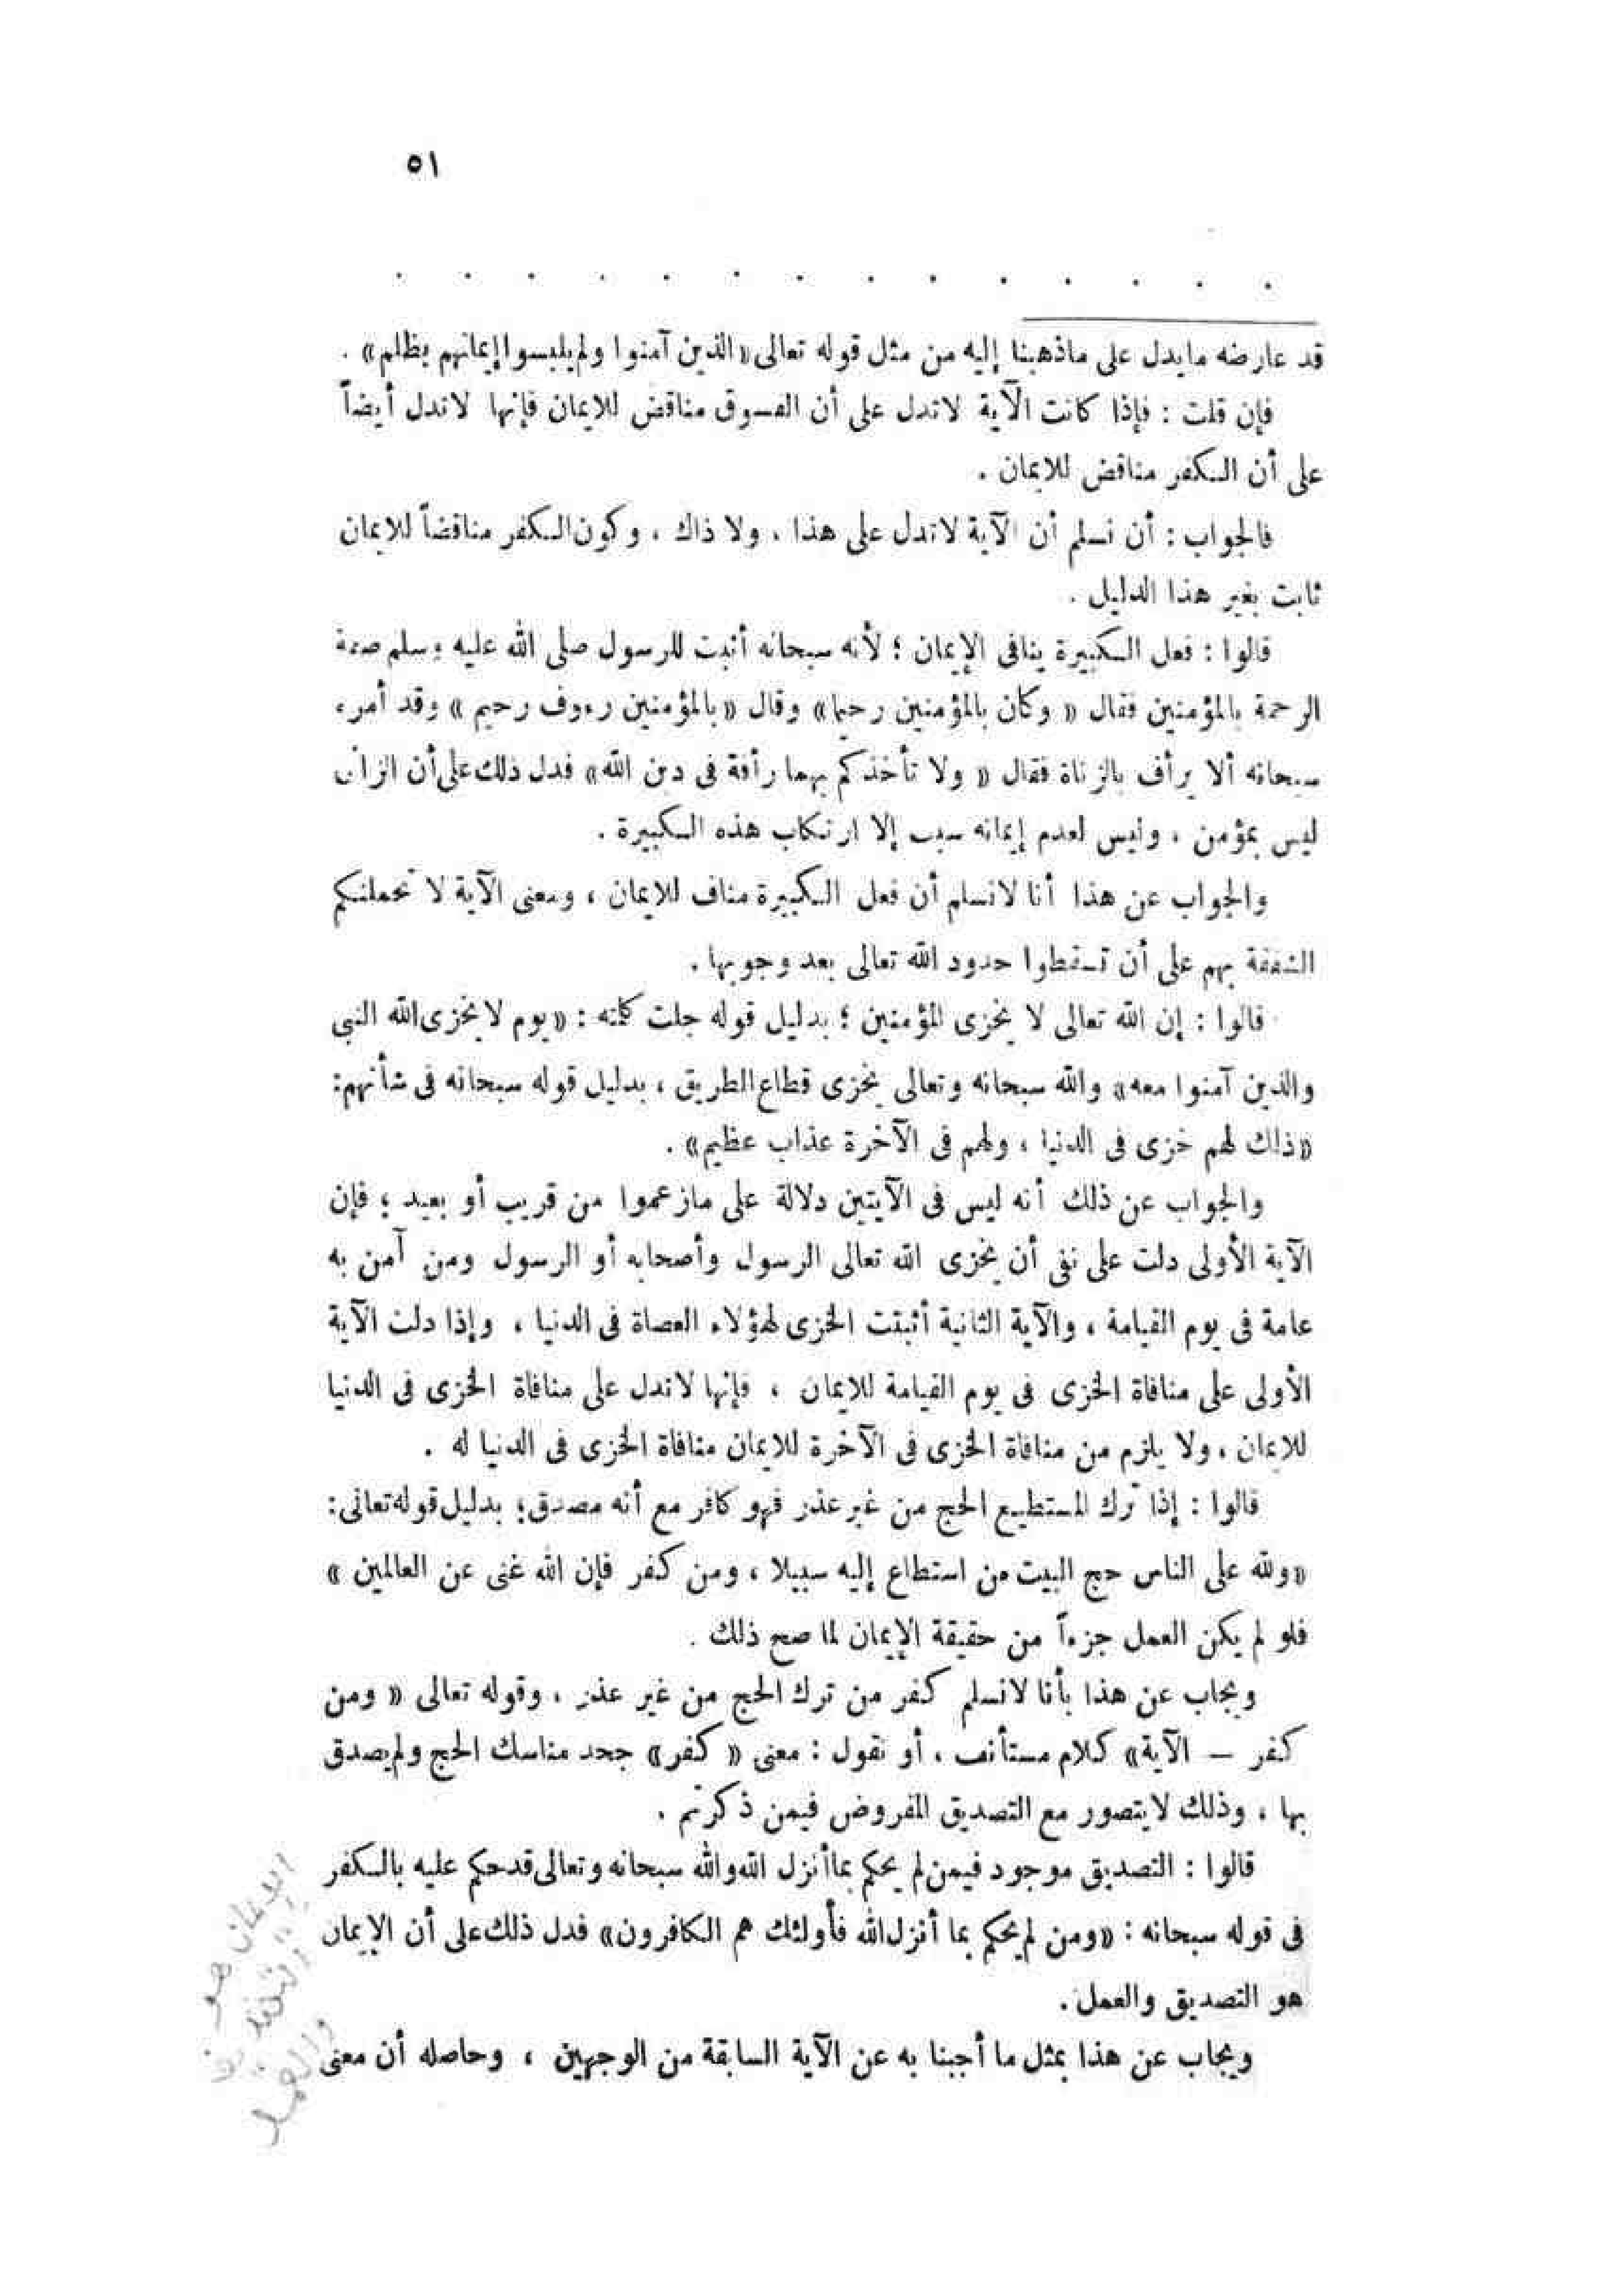 ٥١
. . . . . . . . . . . . . .
قد عارضه مايدل على ماذهبنا إليه من مثل قوله تعالى «الذين آمنوا ولم يلبسوا إيمانهم بظلم» .
فإن قلت : فإذا كانت الآية لاتدل على أن الفسوق مناقض للايمان فإنها لاتدل أيضاً
على أن الكفر مناقض للايمان .
فالجواب : أن نسلم أن الآية لاتدل على هذا ، ولا ذاك ، وكون الكفر مناقضاً للايمان
ثابت بغير هذا الدليل .
قالوا : فعل الكبيرة ينافى الإيمان ؛ لأنه سبحانه أثبت للرسول صلى الله عليه وسلم صفة
الرحمة بالمؤمنين فقال « وكان بالمؤمنين رحيما» وقال «بالمؤمنين رءوف رحيم» وقد أمره
سبحانه ألا يرأف بالزناة فقال « ولا تأخذكم بهما رأفة فى دين الله» فدل ذلك على أن الزانى
ليس بمؤمن ، وليس لعدم إيمانه سبب إلا ارتكاب هذه الكبيرة .
والجواب عن هذا أنا لانسلم أن فعل الكبيرة مناف للايمان ، ومعنى الآية لا تحملنكم
الشفقة بهم على أن تسقطوا حدود الله تعالى بعد وجوبها .
قالوا : إن الله تعالى لا يخزى المؤمنين ؛ بدليل قوله جلت كلمته : «يوم لايخزى الله النبى
والذين آمنوا معه» والله سبحانه وتعالى يخزى قطاع الطريق ، بدليل قوله سبحانه فى شأنهم:
«ذلك لهم خزى فى الدنيا ، ولهم فى الآخرة عذاب عظيم» .
والجواب عن ذلك أنه ليس فى الآيتين دلالة على مازعموا من قريب أو بعيد ؛ فإن
الآية الأولى دلت على نفى أن يخزى الله تعالى الرسول وأصحابه أو الرسول ومن آمن به
عامة فى يوم القيامة ، والآية الثانية أثبتت الخزى لهؤلاء العصاة فى الدنيا ، وإذا دلت الآية
الأولى على منافاة الخزى فى يوم القيامة للايمان ، فإنها لاتدل على منافاة الخزى فى الدنيا
للايمان ، ولا يلزم من منافاة الخزى فى الآخرة للايمان منافاة الخزى فى الدنيا له .
قالوا : إذا ترك المستطيع الحج من غير عذر فهو كافر مع أنه مصدق؛ بدليل قوله تعالى:
«ولله على الناس حج البيت من استطاع إليه سبيلا ، ومن كفر فإن الله غنى عن العالمين »
فلو لم يكن العمل جزءاً من حقيقة الإيمان لما صح ذلك .
ويجاب عن هذا بأنا لانسلم كفر من ترك الحج من غير عذر ، وقوله تعالى « ومن
كفر — الآية» كلام مستأنف ، أو نقول : معنى « كفر» جحد مناسك الحج ولم يصدق
بها ، وذلك لايتصور مع التصديق المفروض فيمن ذكرتم .
قالوا : التصديق موجود فيمن لم يحكم بما أنزل الله والله سبحانه وتعالى قد حكم عليه بالكفر
فى قوله سبحانه : «ومن لم يحكم بما أنزل الله فأولئك هم الكافرون» فدل ذلك على أن الإيمان
هو التصديق والعمل .
ويجاب عن هذا بمثل ما أجبنا به عن الآية السابقة من الوجهين ، وحاصله أن معنى
الإيمان هو
التصديق
والعمل